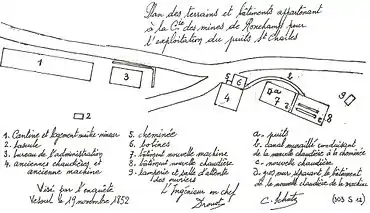 Plan des terrains et bâtiments appartenant
à la Cie des mines de Ronchamp pour
l'exploitation du puits St Charles
1
3
5
6
4
b
a
7
c
8
9
2
1. Cantine et logement maître mineur
2. bascule
3. bureau de l'administration
4. anciennes chaudières et
ancienne machine
5. cheminée
6. bobines
7. bâtiment nouvelle machine
8. bâtiment nouvelle chaudière
9. lampisterie et salle d'attente
des ouvriers
a. puits
b. canal muraillé conduisant
de la nouvelle chaudière à la cheminée
c. nouvelle chaudière
d. gros mur séparant le bâtiment
de la nouvelle chaudière de la machine
Visé par l'enquête
Vesoul le 19 novembre 1852
L'Ingénieur en chef
Drouot
C. Schutz
(303 S 12)